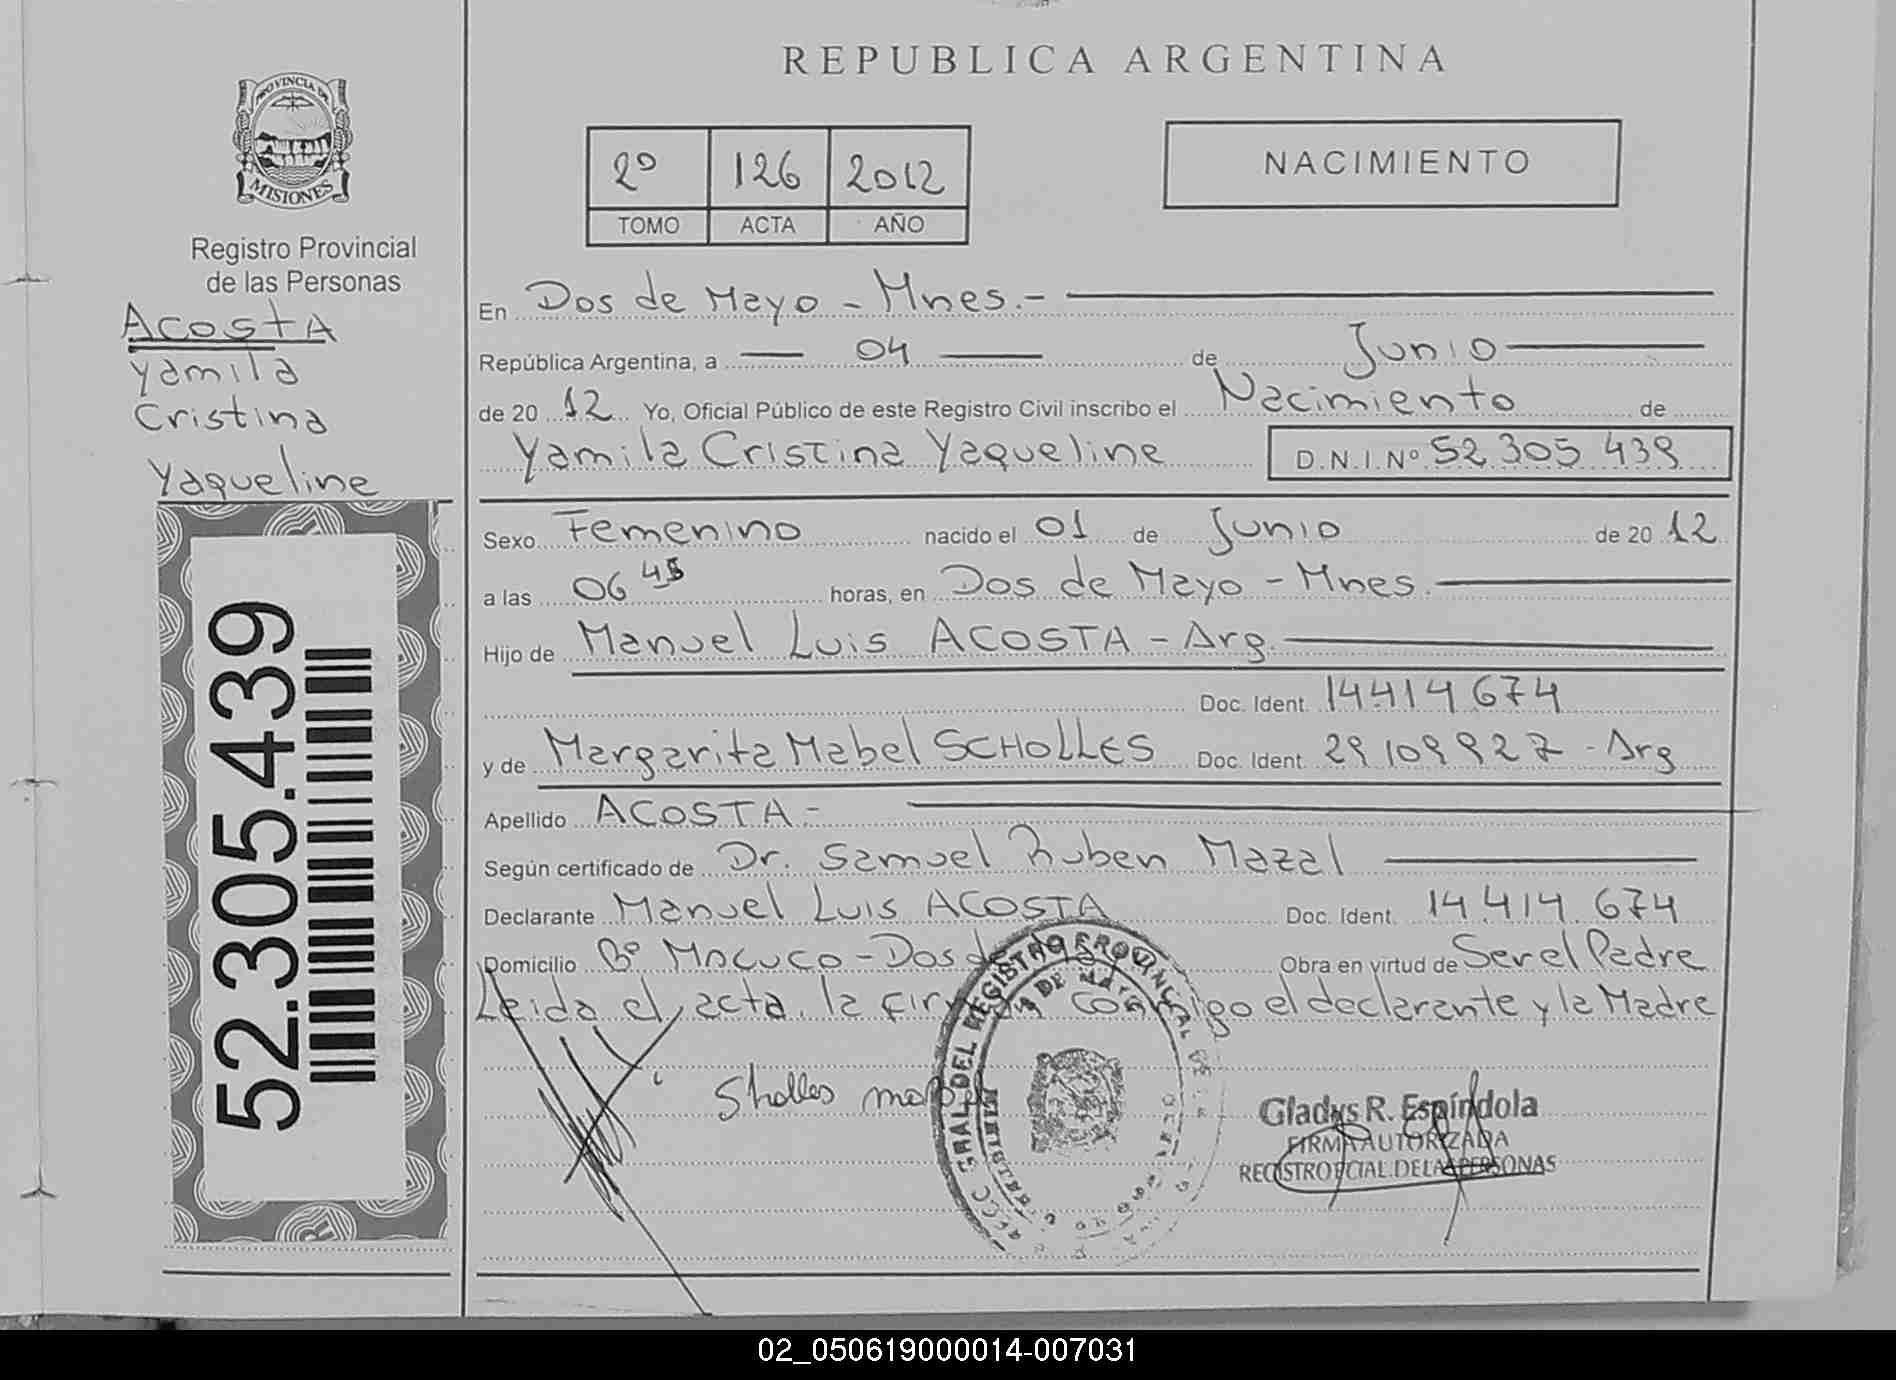 PROVINCIA DE
MISIONES
Registro Provincial
de las Personas
ACOSTA
Yamila
Cristina
Yaqueline
52.305.439
REPUBLICA ARGENTINA
2º 126 2012
TOMO ACTA AÑO
NACIMIENTO
En Dos de Mayo - Mnes.-
República Argentina, a 04 de Junio
de 20 12 Yo, Oficial Público de este Registro Civil inscribo el Nacimiento de
Yamila Cristina Yaqueline D.N.I.Nº 52.305 439
Sexo Femenino nacido el 01 de Junio de 20 12
a las 06 45 horas, en Dos de Mayo - Mnes.
Hijo de Manuel Luis ACOSTA - Arg.
Doc. Ident. 14.414 674
y de Margarita Mabel SCHOLLES Doc. Ident. 29 109 927 - Arg
Apellido ACOSTA -
Según certificado de Dr. Samuel Ruben Mazal
Declarante Manuel Luis ACOSTA Doc. Ident. 14.414.674
Domicilio Bº Mocuco - Dos de Obra en virtud de Ser el Padre
Leida el acta, la firman conmigo el declarante y la Madre
Sholles mabel
GRAL. DEL REGISTRO PROVINCIAL DE
Gladys R. Espíndola
FIRMA AUTORIZADA
REGISTRO PCIAL. DE LAS PERSONAS
02_050619000014-007031